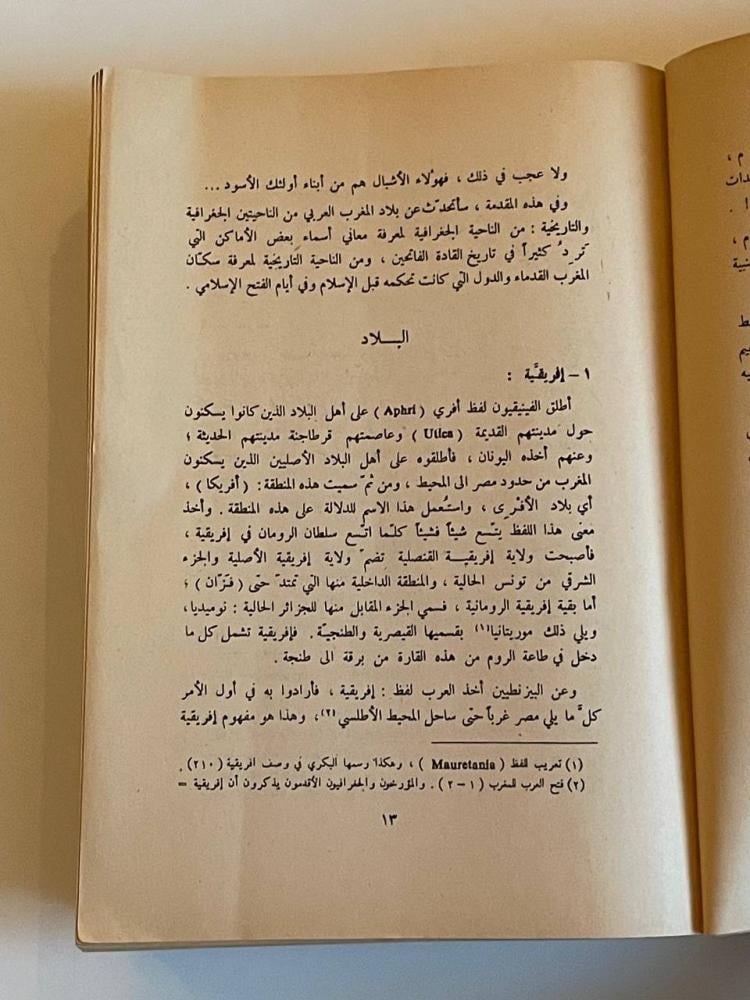 ولا عجب في ذلك ، فهؤلاء الأشبال هم من أبناء أولئك الأسود ...
وفي هذه المقدمة ، سأتحدّث عن بلاد المغرب العربي من الناحيتين الجغرافية
والتاريخية : من الناحية الجغرافية لمعرفة معاني أسماء بعض الأماكن التي
تردُ كثيراً في تاريخ القادة الفاتحين ، ومن الناحية التاريخية لمعرفة سكّان
المغرب القدماء والدول التي كانت تحكمه قبل الإسلام وفي أيام الفتح الإسلامي .
البـلاد
١ - إفريقيَّة :
أطلق الفينيقيون لفظ أفري ( Aphri ) على أهل البلاد الذين كانوا يسكنون
حول مدينتهم القديمة ( Utica ) وعاصمتهم قرطاجنة مدينتهم الحديثة ؛
وعنهم أخذه اليونان ، فأطلقوه على أهل البلاد الأصليين الذين يسكنون
المغرب من حدود مصر الى المحيط ، ومن ثمّ سميت هذه المنطقة : ( أفريكا ) ،
أي بلاد الأفْري ، واستُعمل هذا الاسم للدلالة على هذه المنطقة . وأخذ
معنى هذا اللفظ يتّسع شيئاً فشيئاً كلّما اتّسع سلطان الرومان في إفريقية ،
فأصبحت ولاية إفريقيـة القنصلية تضمّ ولاية إفريقية الأصلية والجزء
الشرقي من تونس الحالية ، والمنطقة الداخلية منها التي تمتدّ حتّى ( فزّان ) ؛
أما بقية إفريقية الرومانية ، فسمي الجزء المقابل منها للجزائر الحالية : نوميديا،
ويلي ذلك موريتانيا(١) بقسميها القيصرية والطنجيّة . فإفريقية تشمل كل ما
دخل في طاعة الروم من هذه القارة من برقة الى طنجة .
وعن البيزنطيين أخذ العرب لفظ : إفريقية ، فأرادوا به في أول الأمر
كلَّ ما يلي مصر غرباً حتّى ساحل المحيط الأطلسي(٢)، وهذا هو مفهوم إفريقية
(١) تعريب للفظ ( Mauretania ) ، وهكذا رسمها البكري في وصف افريقية (٢١٠) .
(٢) فتح العرب للمغرب ( ١ - ٢ ) . والمؤرخون والجغرافيون الأقدمون يذكرون أن إفريقية =
١٣